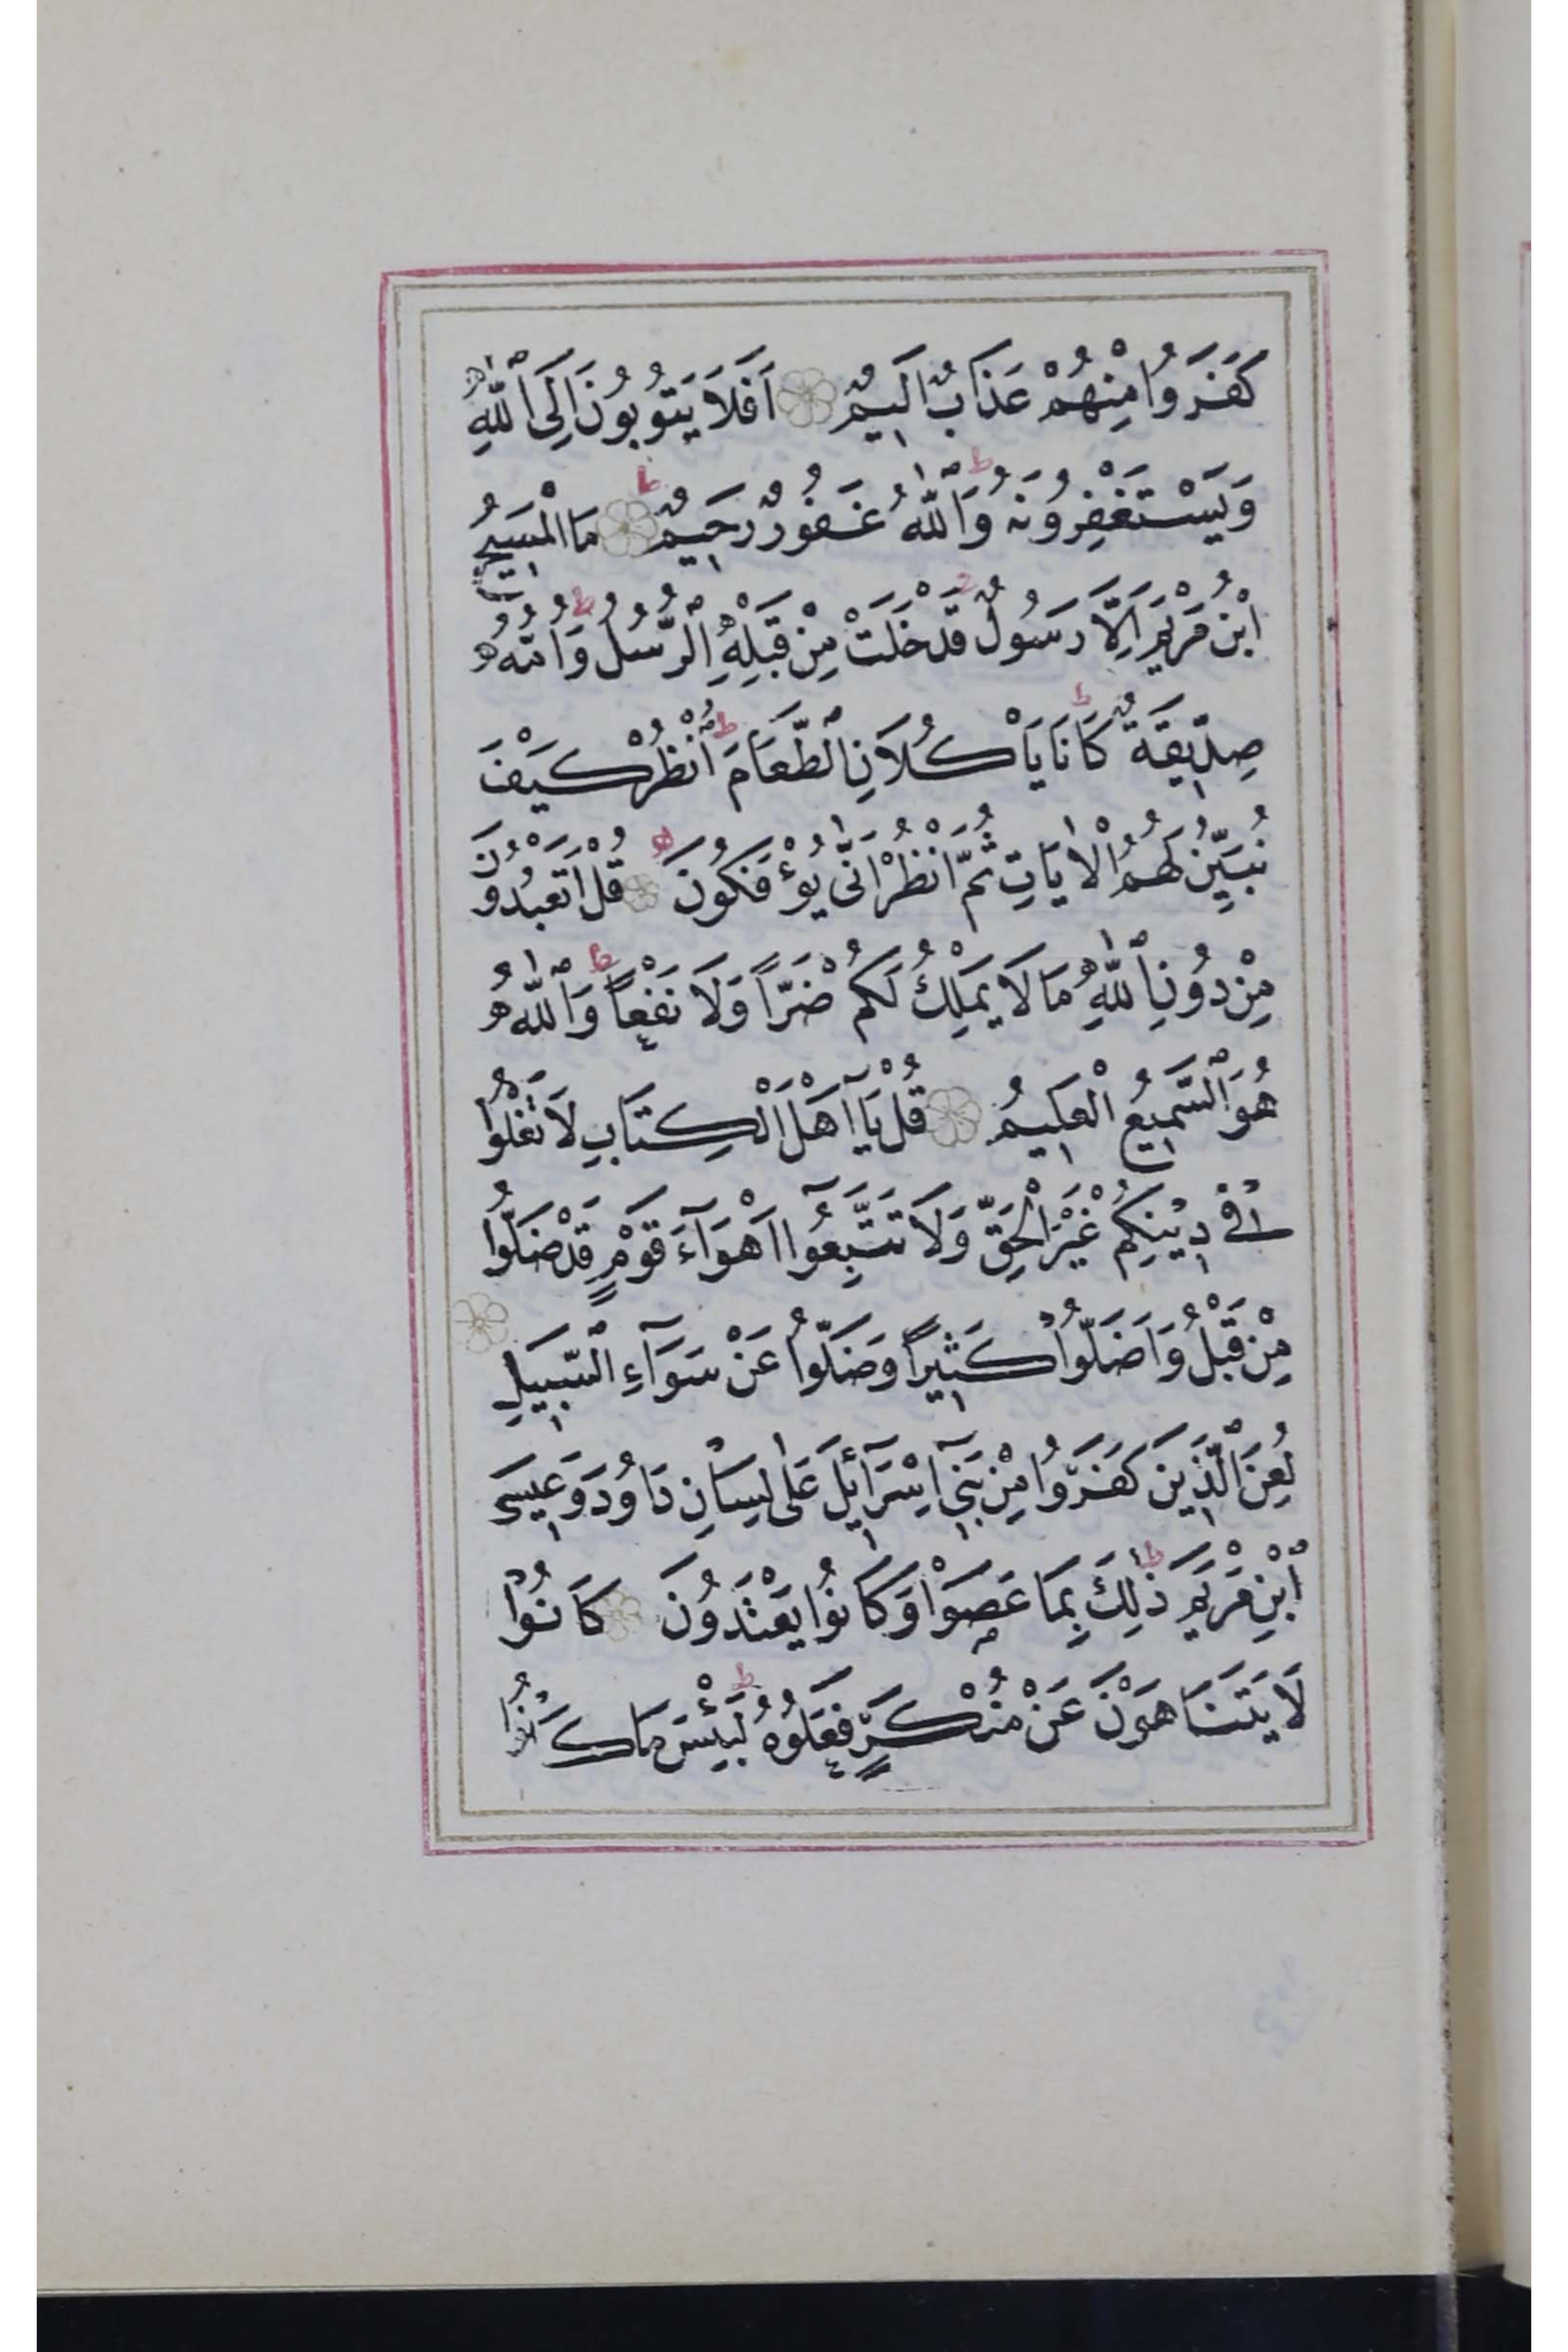 كَفَرَوُا مِنْهُمْ عَذَابٌ اَلِيمٌ اَفَلَا يَتُوبُونَ اِلَى ٱللّٰهِ
وَيَسْتَغْفِرُونَهُ وَٱللّٰهُ غَفُورٌ رَحِيمٌ مَا الْمَسِيحُ
ابْنُ مَرْيَمَ اِلَّا رَسُولٌ قَدْ خَلَتْ مِنْ قَبْلِهِ ٱلرُّسُلُ وَاُمُّهُ
صِدِّيقَةٌ كَانَا يَأْكُلَانِ ٱلطَّعَامَ اُنْظُرْ كَيْفَ
نُبَيِّنُ لَهُمُ الْاٰيَاتِ ثُمَّ انْظُرْ اَنّٰى يُؤْفَكُونَ قُلْ اَتَعْبُدُونَ
مِنْ دُونِ ٱللّٰهِ مَا لَا يَمْلِكُ لَكُمْ ضَرًّا وَلَا نَفْعًا وَٱللّٰهُ
هُوَ ٱلسَّمِيعُ الْعَلِيمُ قُلْ يَآ اَهْلَ الْكِتَابِ لَا تَغْلُوا
فِي دِينِكُمْ غَيْرَ الْحَقِّ وَلَا تَتَّبِعُوآ اَهْوَآءَ قَوْمٍ قَدْ ضَلُّوا
مِنْ قَبْلُ وَاَضَلُّوا كَثِيرًا وَضَلُّوا عَنْ سَوَآءِ ٱلسَّبِيلِ
لُعِنَ ٱلَّذِينَ كَفَرُوا مِنْ بَنِيٓ اِسْرَآئِلَ عَلٰى لِسَانِ دَاوُدَ وَعِيسَى
ٱبْنِ مَرْيَمَ ذٰلِكَ بِمَا عَصَوْا وَكَانُوا يَعْتَدُونَ كَانُوا
لَا يَتَنَاهَوْنَ عَنْ مُنْكَرٍ فَعَلُوهُ لَبِئْسَ مَا كَانُوا